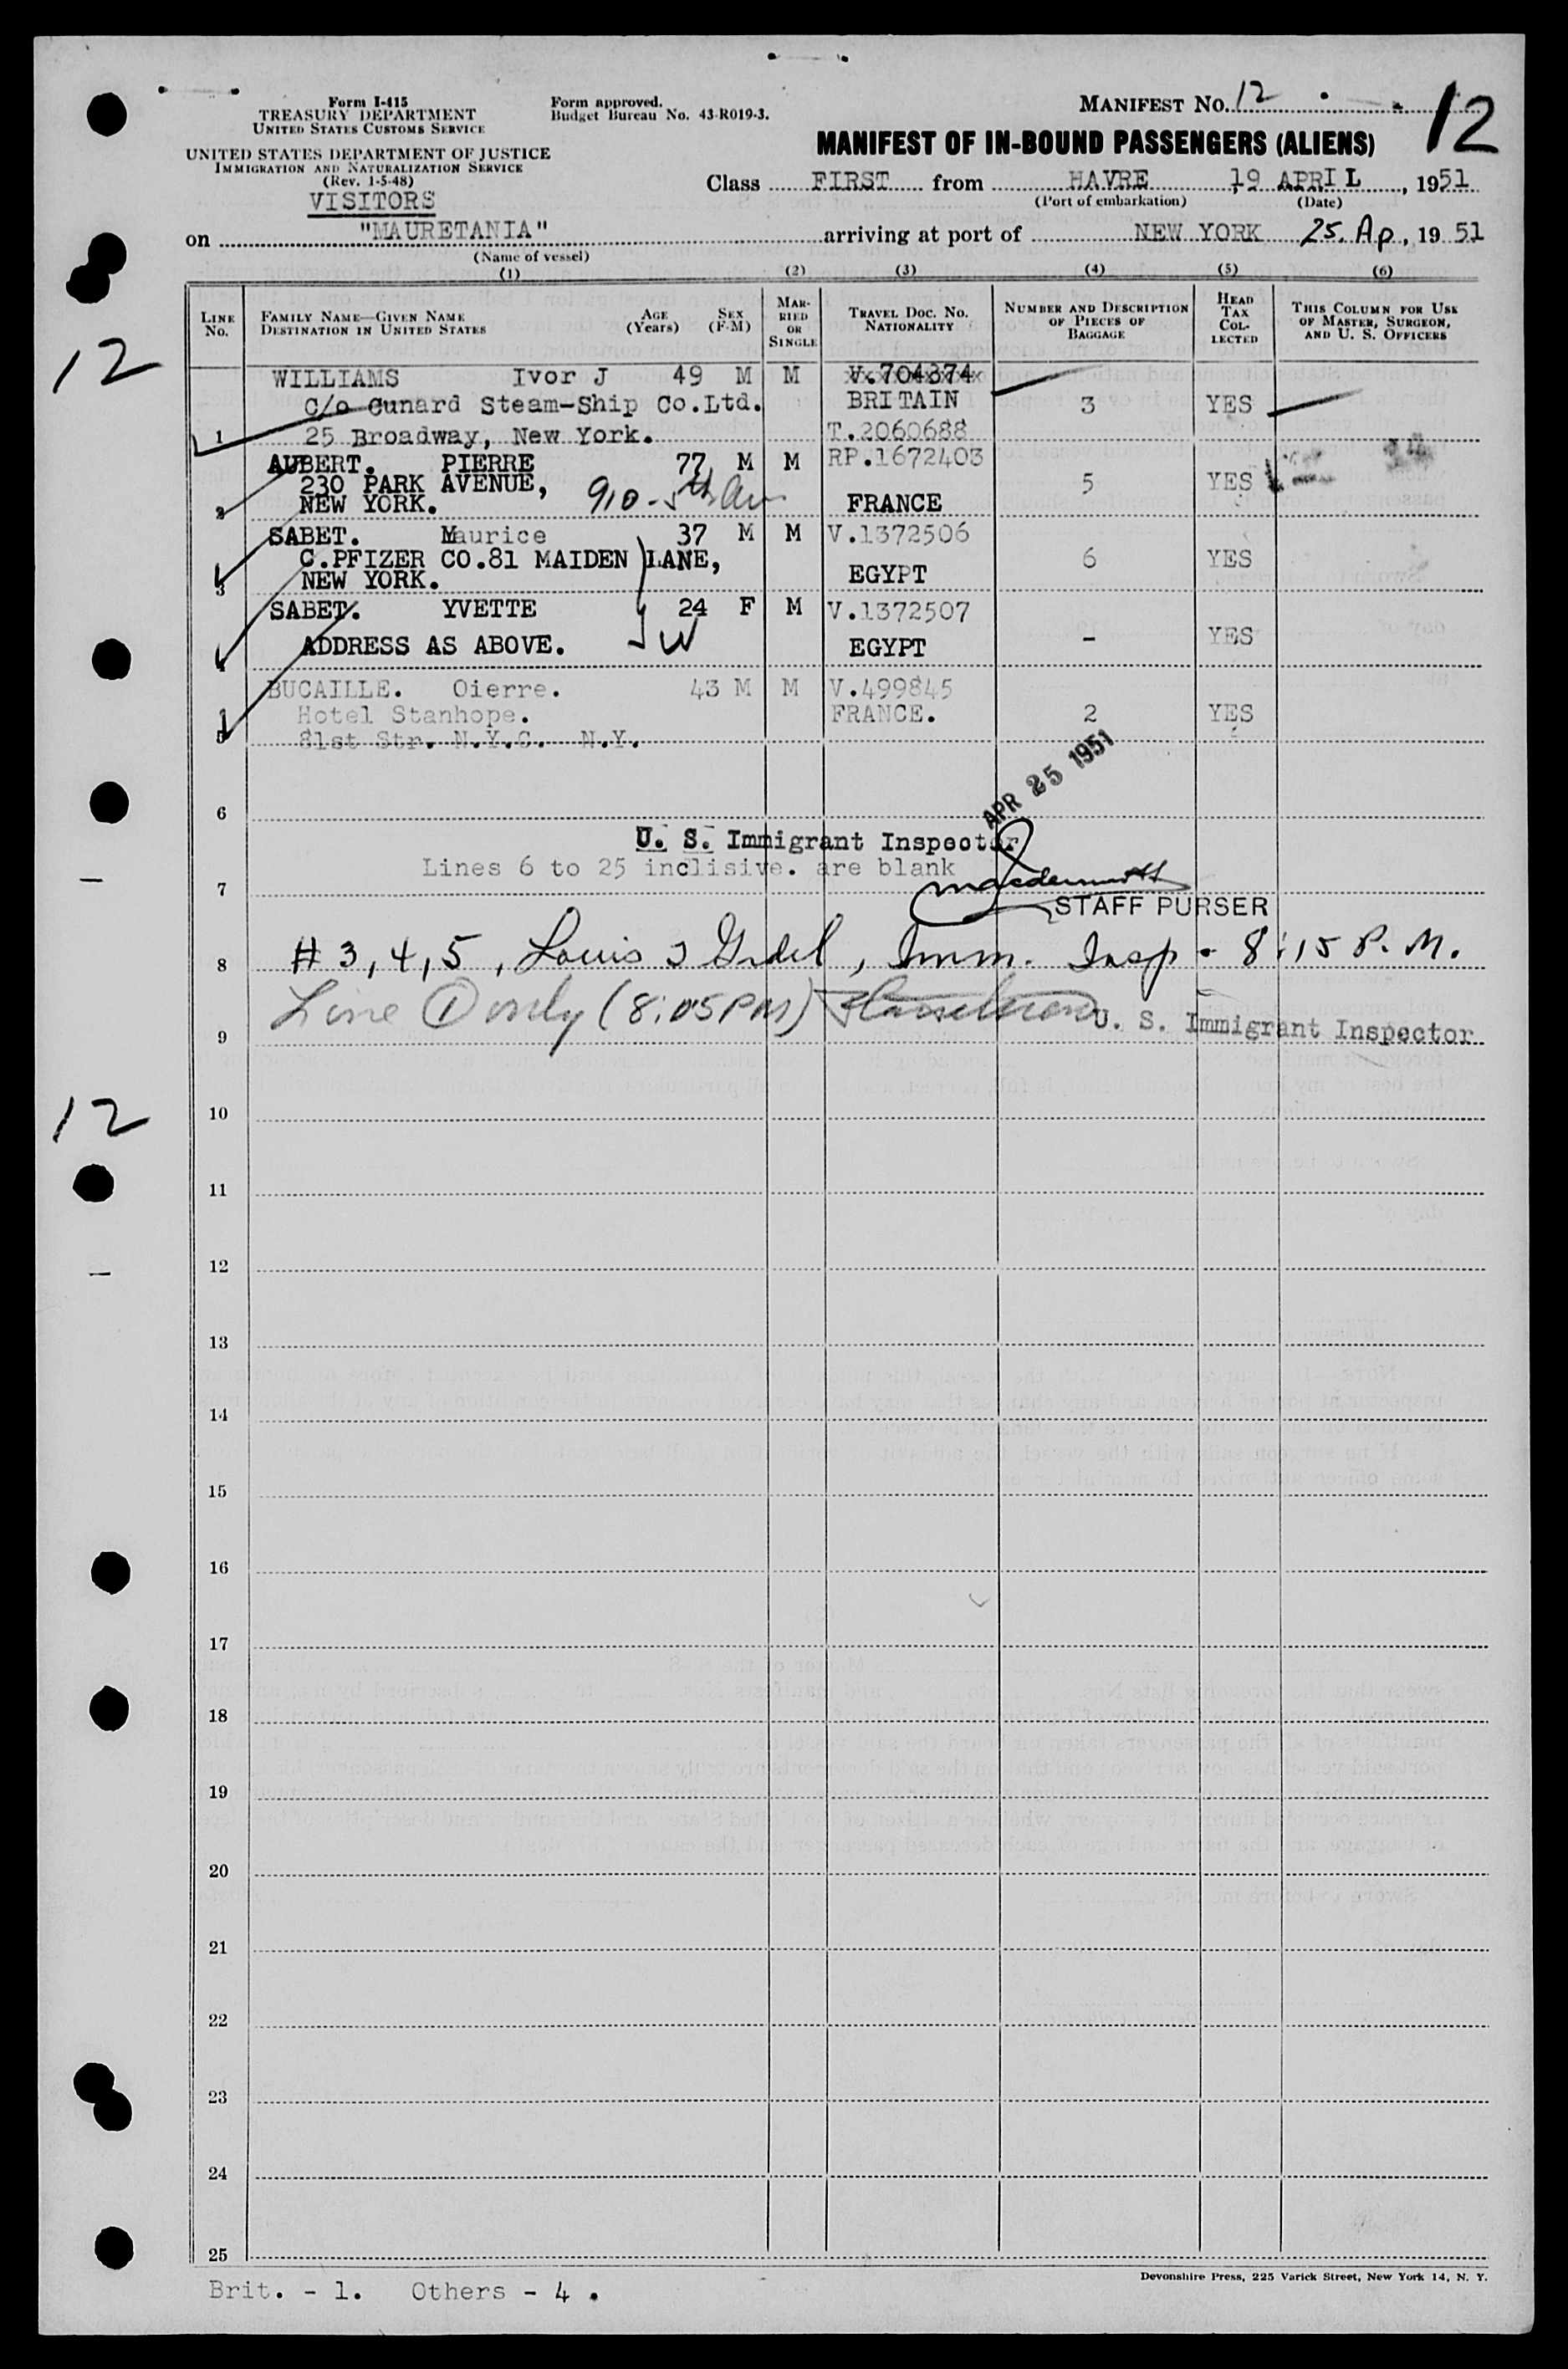 Form I-415
TREASURY DEPARTMENT
UNITED STATES CUSTOMS SERVICE
UNITED STATES DEPARTMENT OF JUSTICE
IMMIGRATION AND NATURALIZATION SERVICE
(Rev. 1-5-48)
VISITORS
Form approved.
Budget Bureau No. 43-R019-3.
MANIFEST NO. 12
12
MANIFEST OF IN-BOUND PASSENGERS (ALIENS)
Class FIRST from HAVRE, 19 APRIL, 1951
(Port of embarkation) (Date)
on "MAURETANIA" arriving at port of NEW YORK 25. Ap, 19 51
(Name of vessel)
(1) (2) (3) (4) (5) (6)
LINE No.
FAMILY NAME—GIVEN NAME
DESTINATION IN UNITED STATES
AGE (Years)
SEX (F-M)
MARRIED OR SINGLE
TRAVEL DOC. NO.
NATIONALITY
NUMBER AND DESCRIPTION OF PIECES OF BAGGAGE
HEAD TAX COLLECTED
THIS COLUMN FOR USE OF MASTER, SURGEON, AND U. S. OFFICERS
12
WILLIAMS Ivor J 49 M M V.704374
C/o Cunard Steam-Ship Co.Ltd. BRITAIN 3 YES
1 25 Broadway, New York. T.2060688
AUBERT. PIERRE 77 M M RP.1672403
230 PARK AVENUE, 910-5th Av 5 YES
2 NEW YORK. FRANCE
SABET. Maurice 37 M M V.1372506
C.PFIZER CO.81 MAIDEN LANE, 6 YES
3 NEW YORK. EGYPT
SABET. YVETTE 24 F M V.1372507
4 ADDRESS AS ABOVE. EGYPT - YES
BUCAILLE. Oierre. 43 M M V.499845
Hotel Stanhope. FRANCE. 2 YES
5 81st Str. N.Y.C. N.Y.
APR 25 1951
6
U. S. Immigrant Inspector
Lines 6 to 25 inclisive. are blank
7
STAFF PURSER
8 #3,4,5, Louis Imm. Insp - 8:15 P.M.
Line 1 only (8:05PM) U. S. Immigrant Inspector
9
10
12
11
12
13
14
15
16
17
18
19
20
21
22
23
24
25
Devonshire Press, 225 Varick Street, New York 14, N. Y.
Brit. - 1. Others - 4 .